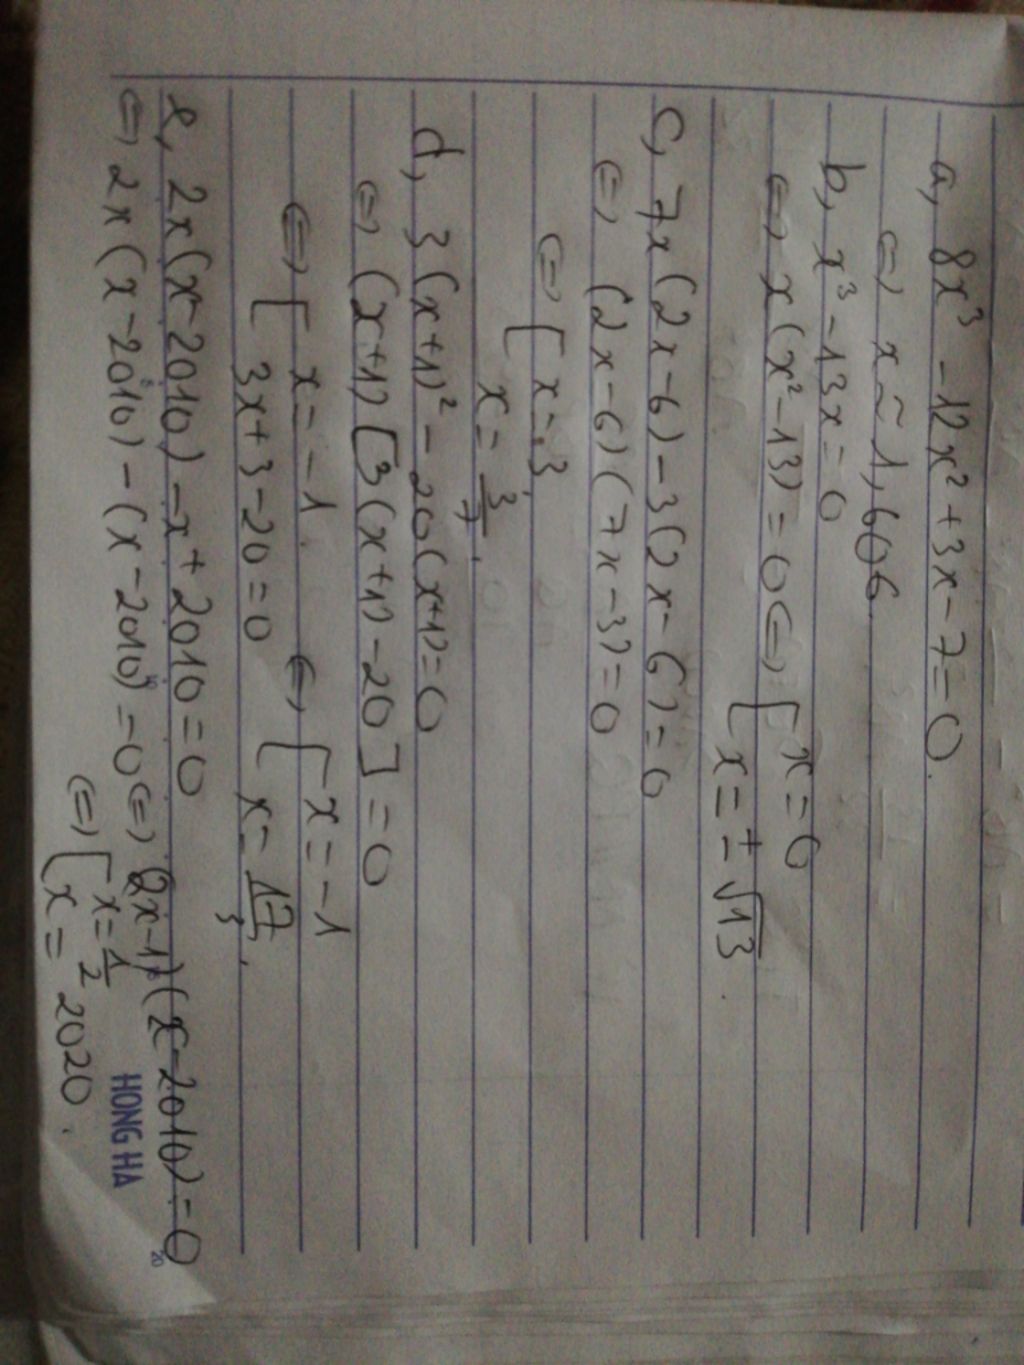 a, 8x³ - 12x² + 3x - 7 = 0.
⇔ x ≃ 1,606
b, x³ - 13x = 0
⇔ x(x² - 13) = 0 ⇔ [ x = 0
x = ± √13
c, 7x(2x - 6) - 3(2x - 6) = 0
⇔ (2x - 6)(7x - 3) = 0
⇔ [ x = 3
x = 3/7.
d, 3(x+1)² - 20(x+1) = 0
⇔ (x+1)[3(x+1) - 20] = 0
⇔ [ x = -1 ⇔ [ x = -1
3x + 3 - 20 = 0 x = 17/3.
e, 2x(x - 2010) - x + 2010 = 0
⇔ 2x(x - 2010) - (x - 2010) = 0 ⇔ (2x - 1)(x - 2010) = 0
⇔ [ x = 1/2
x = 2020.
HONG HA
20